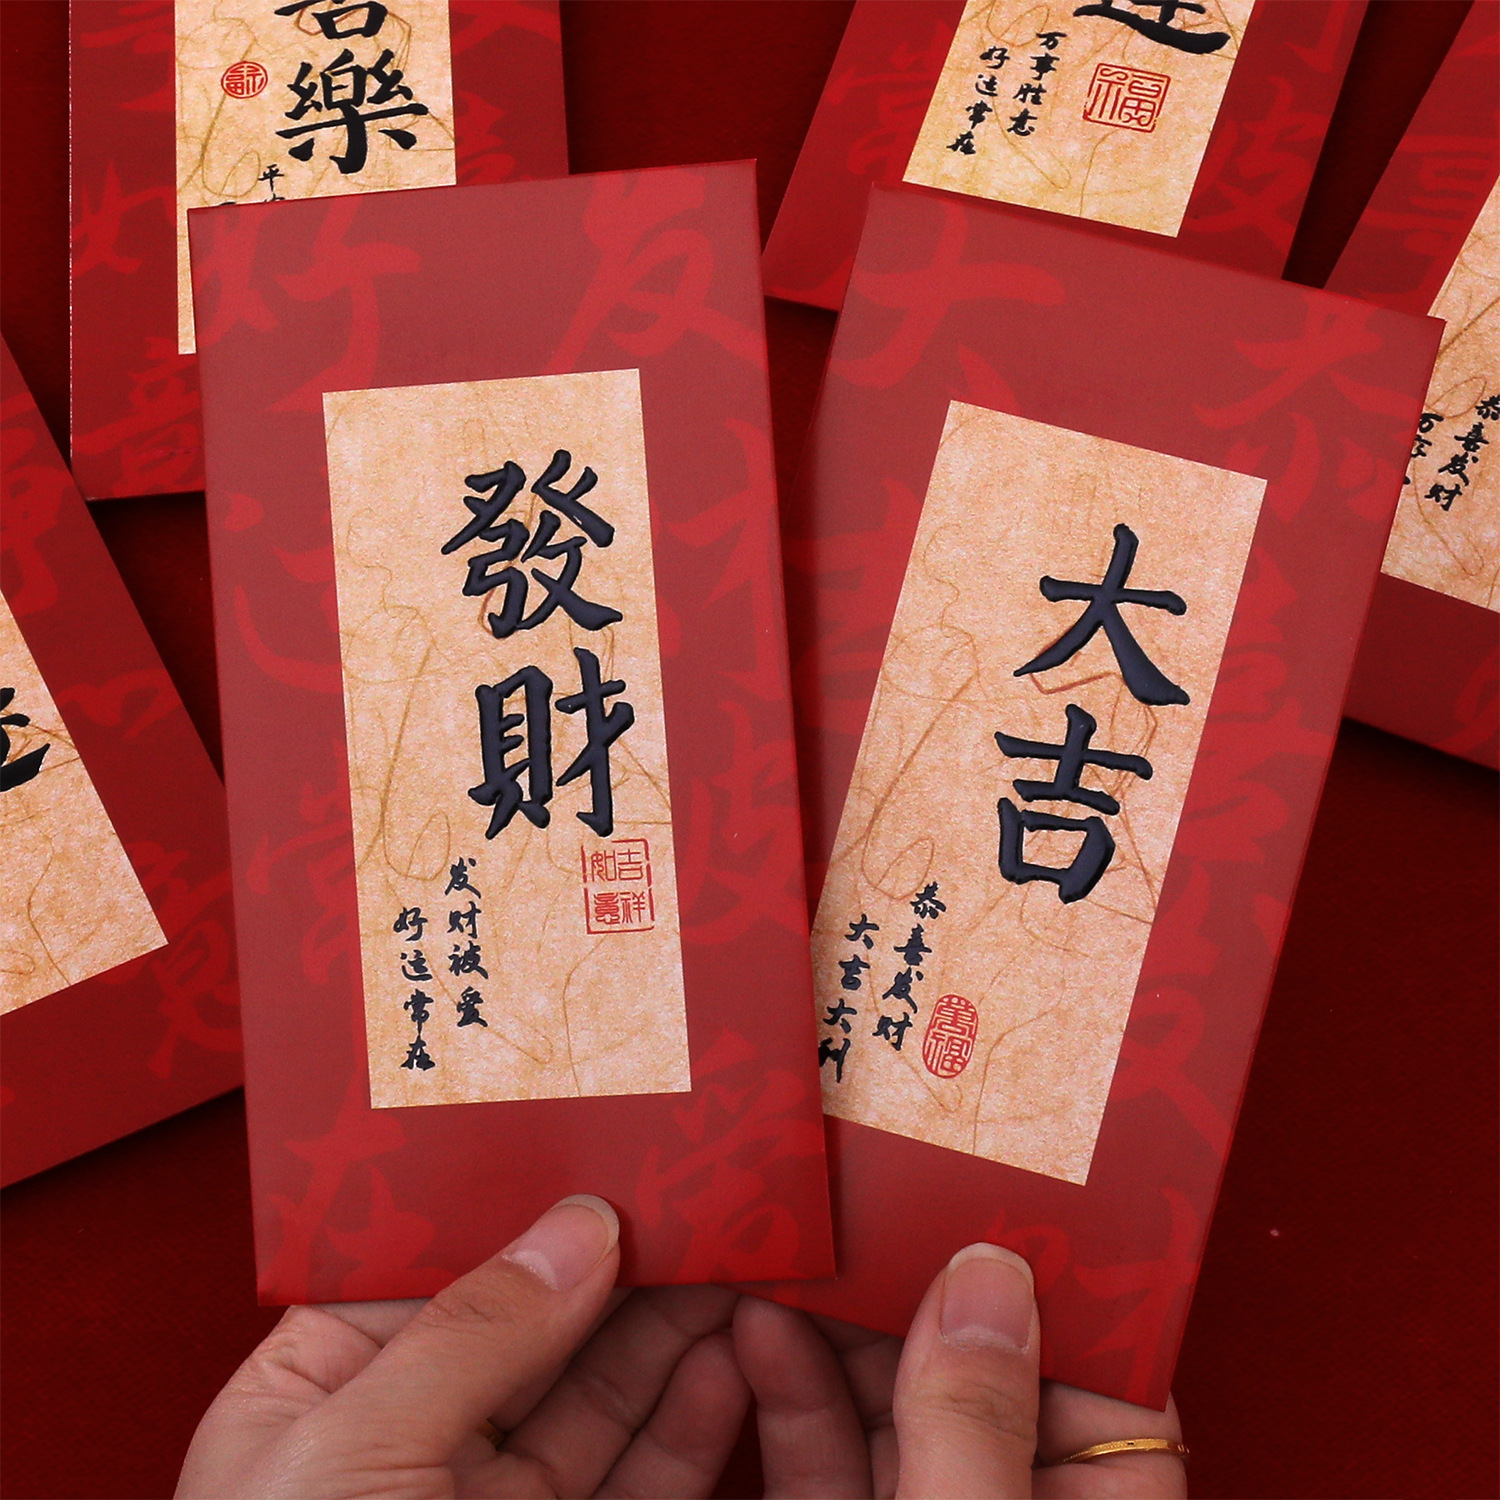 發財
吉祥如意
发财被爱
好运常在
大吉
恭喜发财
大吉大利
萬福
樂
福
万事胜意
好运常在
恭喜发财